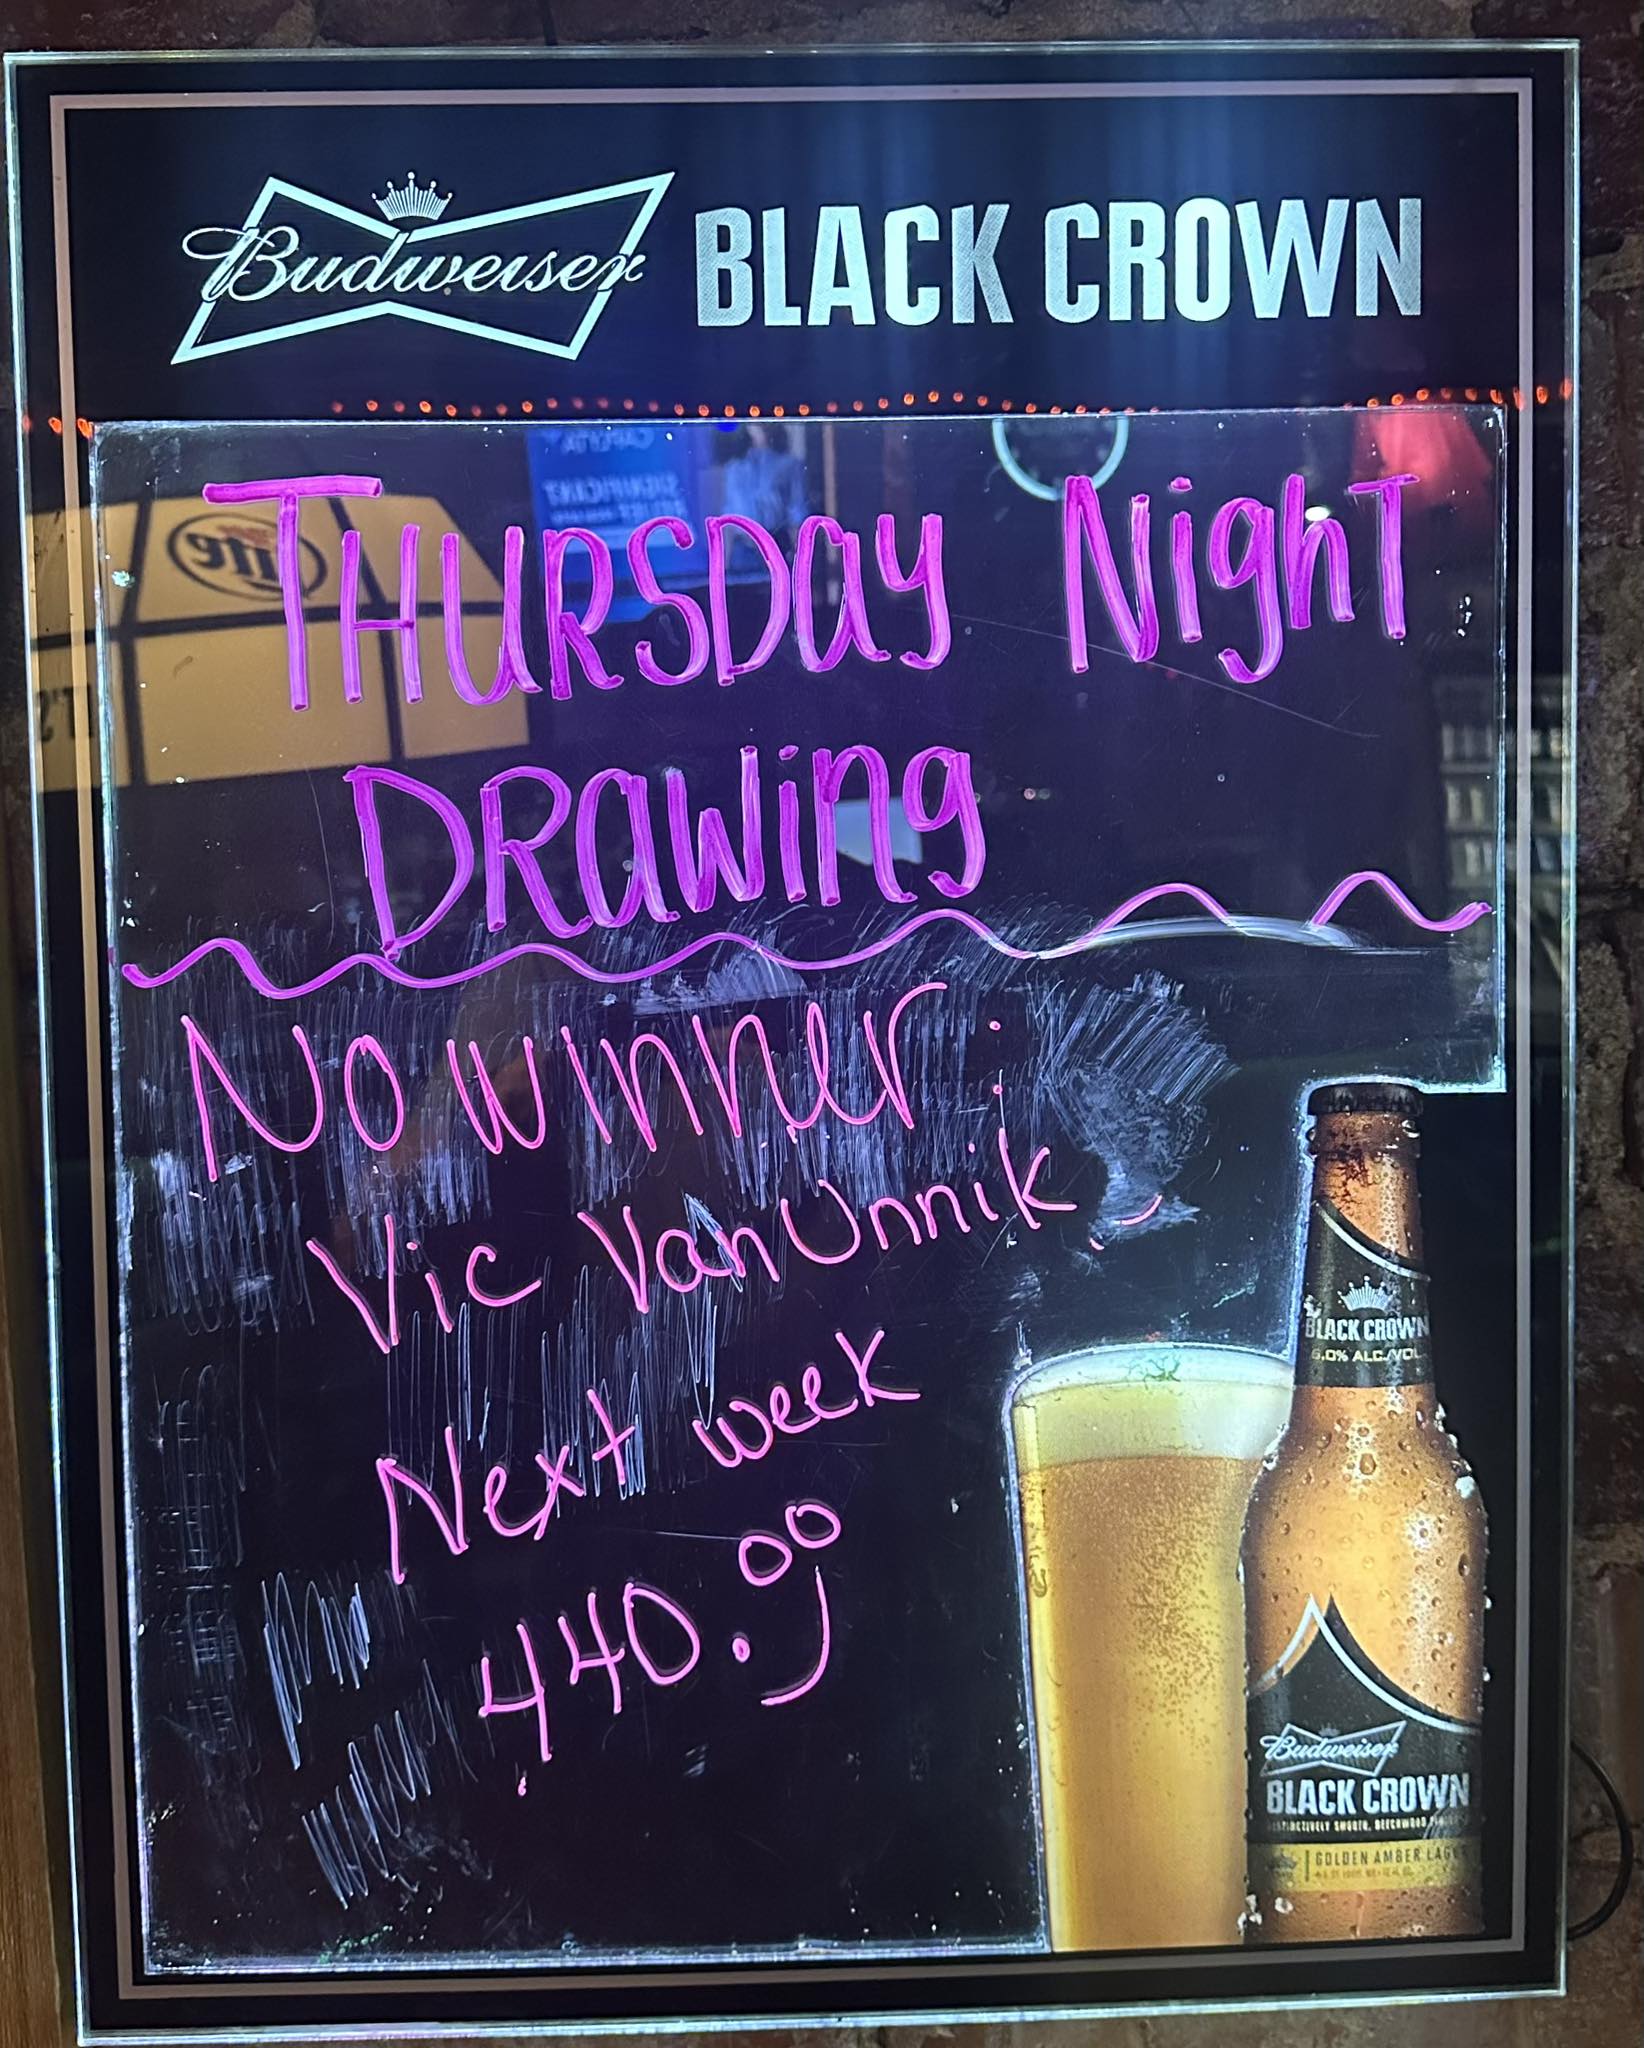 Budweiser BLACK CROWN
THURSDAY NighT
DRAWing
No winner :
Vic VanUnnik
Next week
440.00
BLACK CROWN
6.0% ALC./VOL
Budweiser
BLACK CROWN
GOLDEN AMBER LAGER
Lite